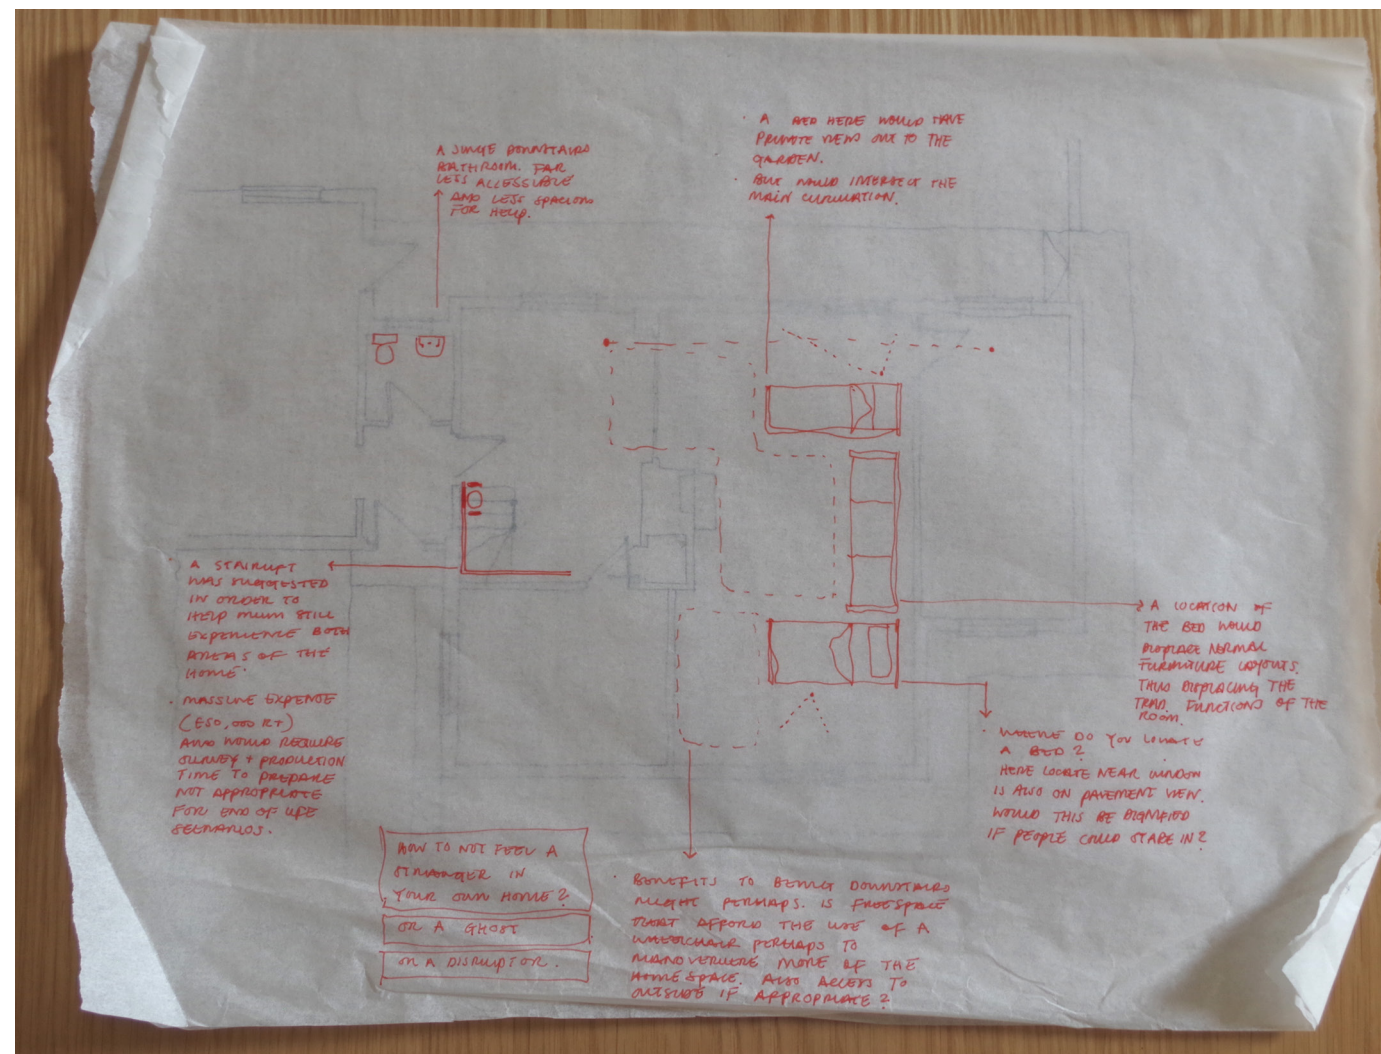 A SINGLE DOWNSTAIRS
BATHROOM. FAR
LESS ACCESSIBLE
AND LESS SPACIOUS
FOR HELP.
· A BED HERE WOULD HAVE
PRIVATE VIEWS OUT TO THE
GARDEN.
BUT WOULD INTERSECT THE
MAIN CIRCULATION.
· A STAIRLIFT
WAS SUGGESTED
IN ORDER TO
HELP MUM STILL
EXPERIENCE BOTH
AREAS OF THE
HOME.
· MASSIVE EXPENSE
(£50,000 R+)
AND WOULD REQUIRE
SURVEY + PRODUCTION
TIME TO PREPARE
NOT APPROPRIATE
FOR END OF LIFE
SCENARIOS.
· A LOCATION OF
THE BED WOULD
DISPLACE NORMAL
FURNITURE LAYOUTS.
THUS DISPLACING THE
TRAD. FUNCTIONS OF THE
ROOM.
· WHERE DO YOU LOCATE
A BED?
HERE LOCATE NEAR WINDOW
IS ALSO ON PAVEMENT VIEW.
WOULD THIS BE DIGNIFIED
IF PEOPLE COULD STARE IN?
HOW TO NOT FEEL A
STRANGER IN
YOUR OWN HOME?
OR A GHOST
OR A DISRUPTOR.
· BENEFITS TO BEING DOWNSTAIRS
MIGHT PERHAPS. IS FREESPACE
THAT AFFORD THE USE OF A
WHEELCHAIR PERHAPS TO
MANOVERUERE MORE OF THE
HOMESPACE. ALSO ACCESS TO
OUTSIDE IF APPROPRIATE?